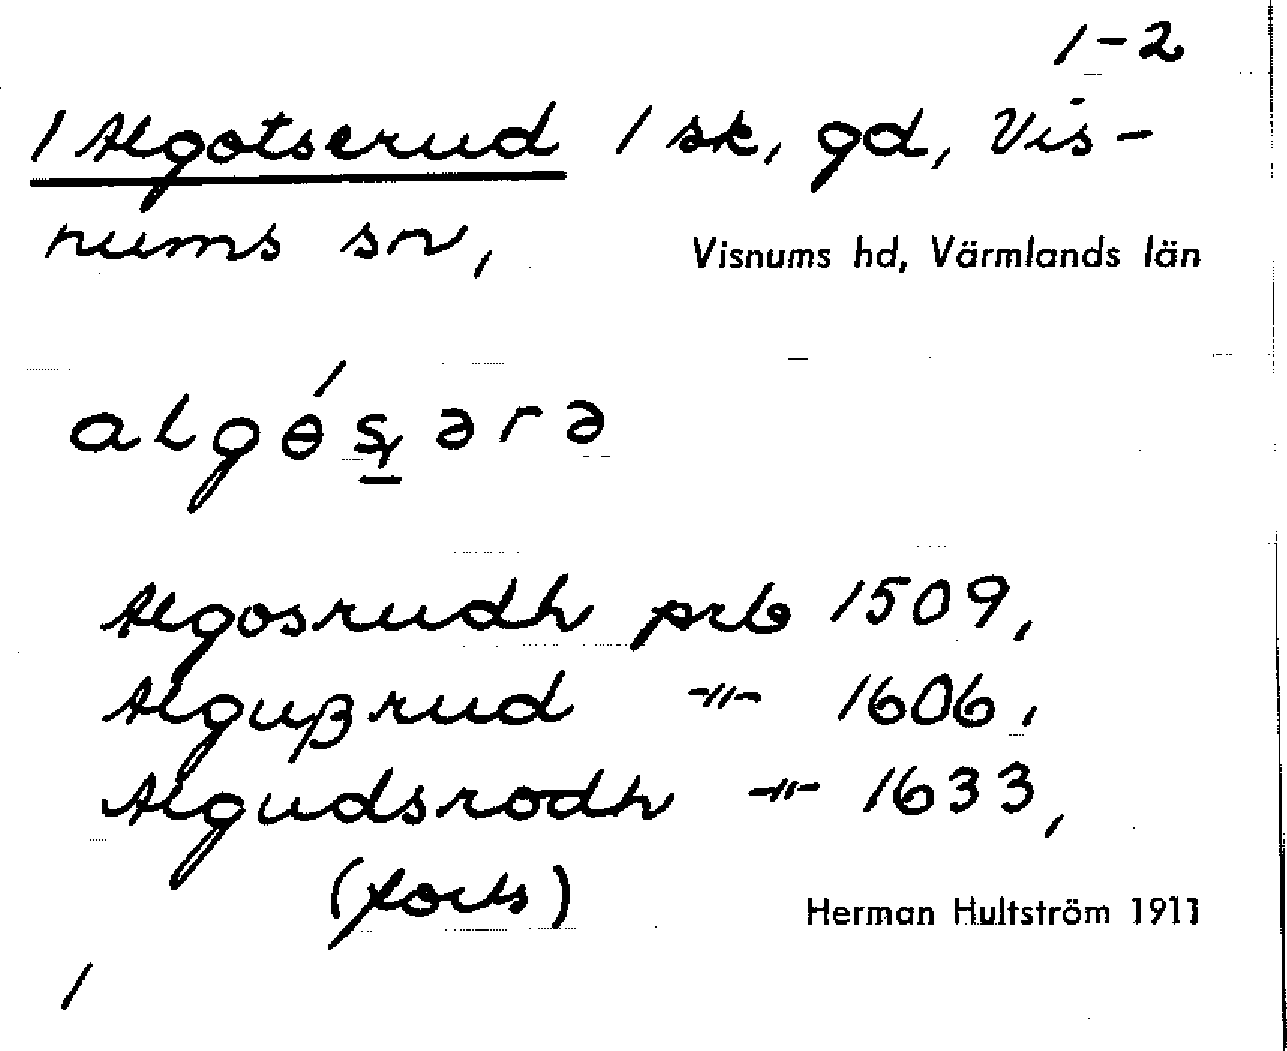 1-2
/ Algotserud / sk, gd, Vis-
nums sn, Visnums hd, Värmlands län
algɵ́ʂərə
Algosrudh prb 1509,
Alguβrud -"- 1606,
Algudsrodh -"- 1633,
(forts)
Herman Hultström 1911
/